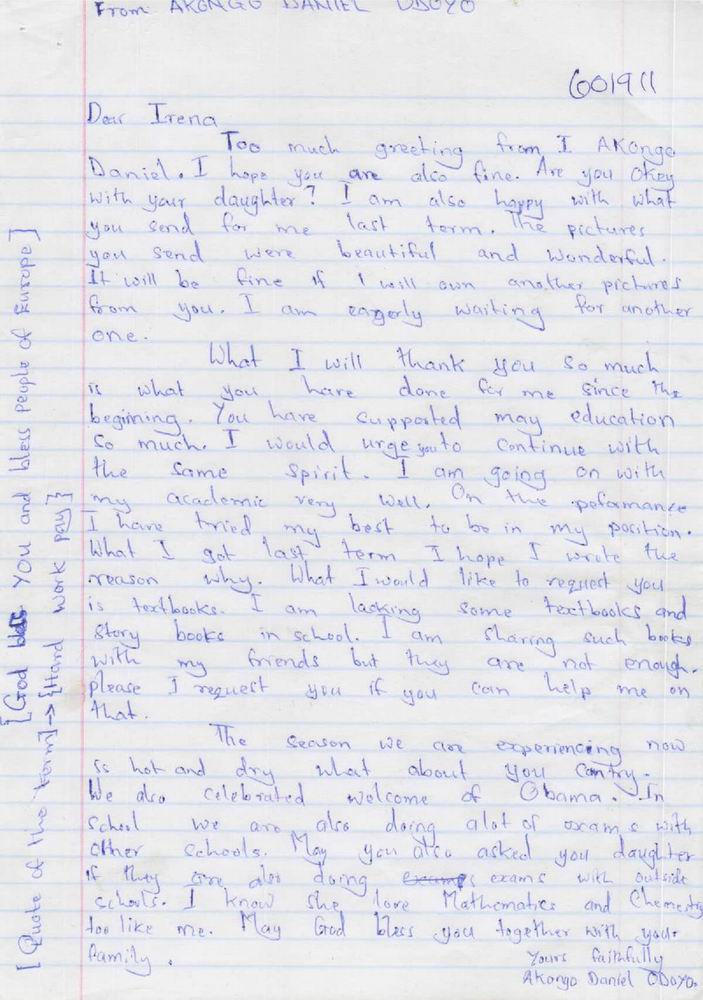 From AKONGO DANIEL ODOYO
601911
Dear Irena
Too much greeting from I AKongo
Daniel. I hope you are also fine. Are you okey
with your daughter? I am also happy with what
you send for me last term. The pictures
you send were beautiful and wonderful.
It will be fine if I will own another pictures
from you. I am eagerly waiting for another
one.
What I will thank you so much
is what you have done for me since the
begining. You have supported may education
so much. I would urge you to continue with
the same spirit. I am going on with
my academic very well. On the peformance
I have tried my best to be in my position.
What I got last term I hope I wrote the
reason why. What I would like to request you
is textbooks. I am lacking some textbooks and
story books in school. I am sharing such books
with my friends but they are not enough.
please I request you if you can help me on
that.
The season we are experiencing now
is hot and dry what about you contry.
We also celebrated welcome of Obama. In
school we are also doing alot of exams with
other schools. May you also asked you daughter
if they are also doing exams with outside
schools. I know she love Mathematics and Chemestry
too like me. May God bless you together with your
family.
Yours faithfully
Akongo Daniel ODOYO.
[God bless YOU and bless people of Europe]
[Quote of the term] -> [Hard work pay]